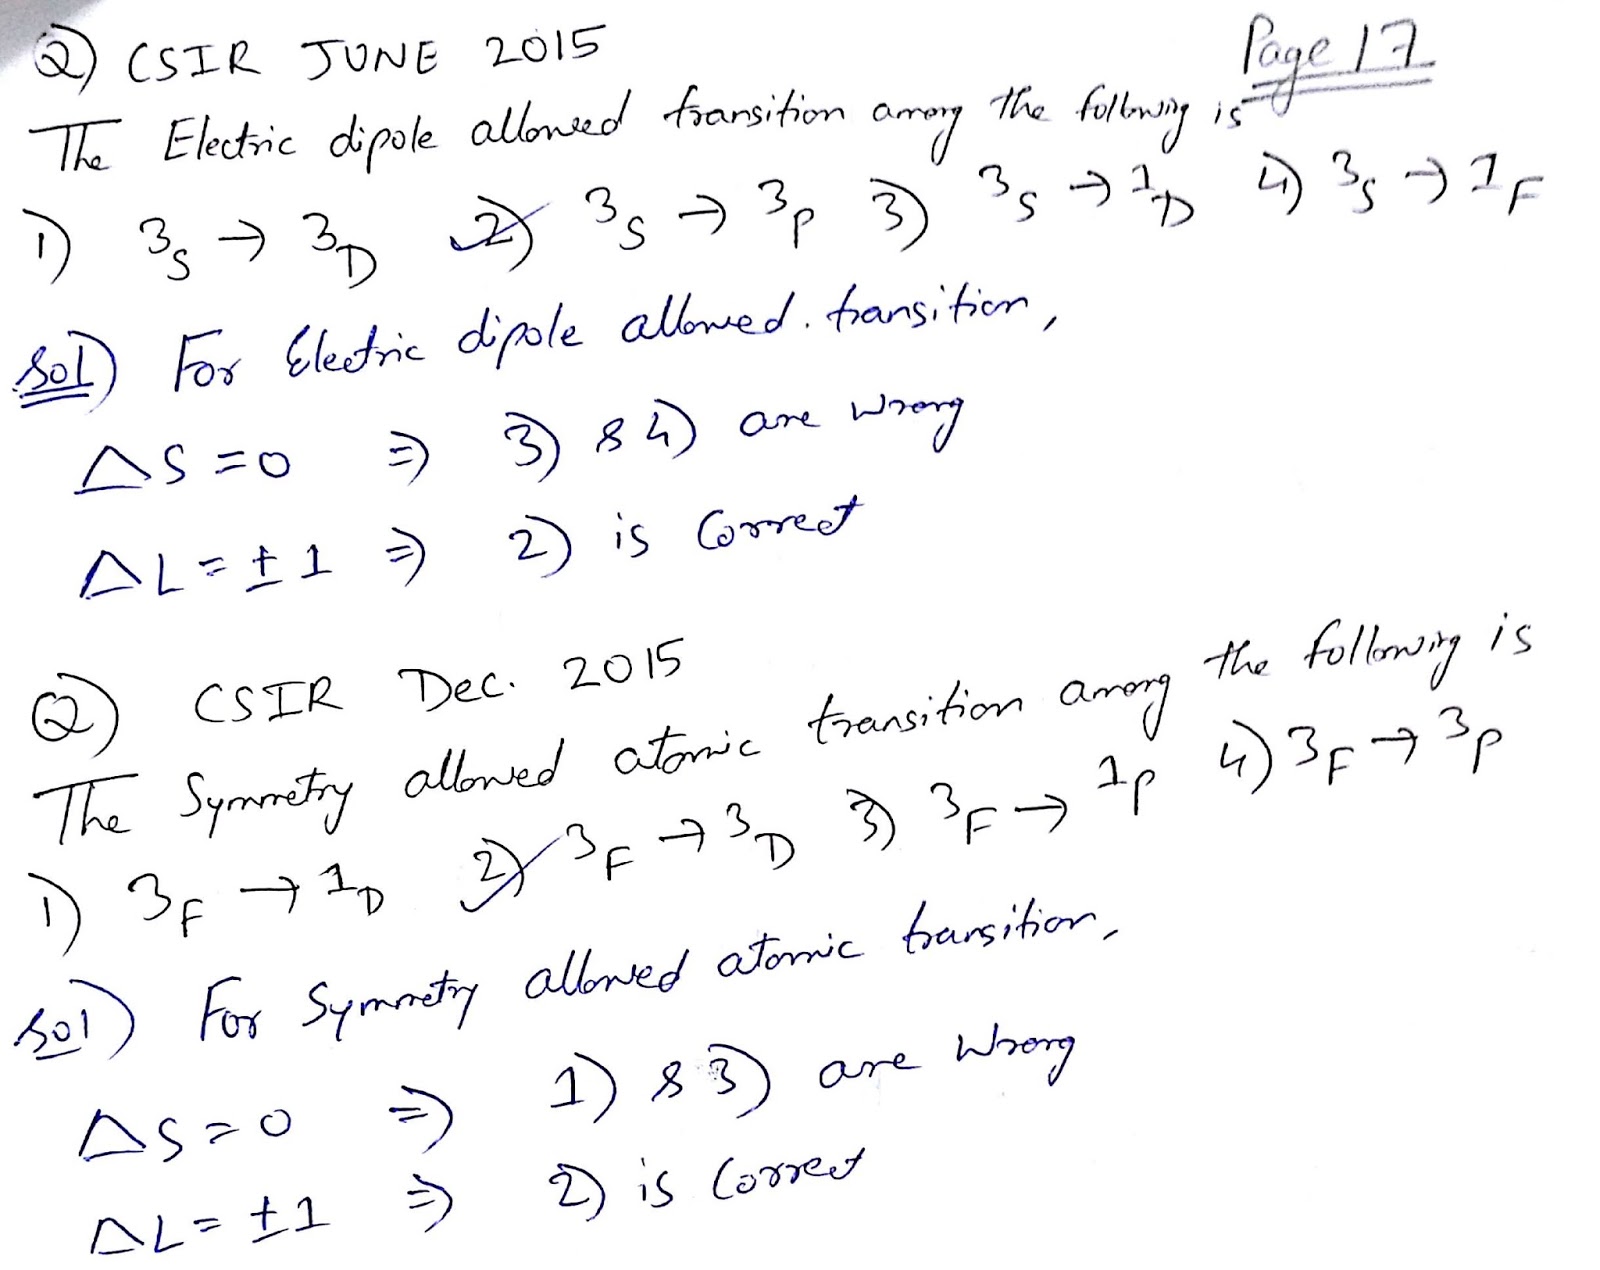 Q) CSIR JUNE 2015
Page 17
The Electric dipole allowed transition among the following is
1) ³S → ³D 2) ³S → ³P 3) ³S → ¹D 4) ³S → ¹F
Sol) For Electric dipole allowed transition,
ΔS = 0 ⇒ 3) & 4) are wrong
ΔL = ± 1 ⇒ 2) is Correct
Q) CSIR Dec. 2015
The Symmetry allowed atomic transition among the following is
1) ³F → ¹D 2) ³F → ³D 3) ³F → ¹P 4) ³F → ³P
Sol) For Symmetry allowed atomic transition,
ΔS = 0 ⇒ 1) & 3) are Wrong
ΔL = ± 1 ⇒ 2) is Correct